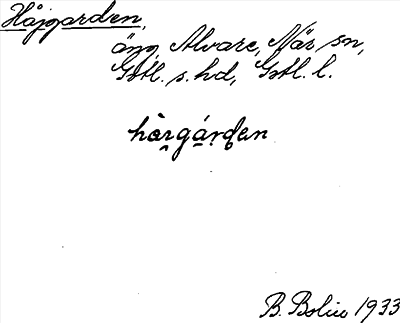 Håjgarden,
äng, Alvare, När sn,
Gotl. s. hd, Gotl. l.
hàrgárden
B. Bolin 1933